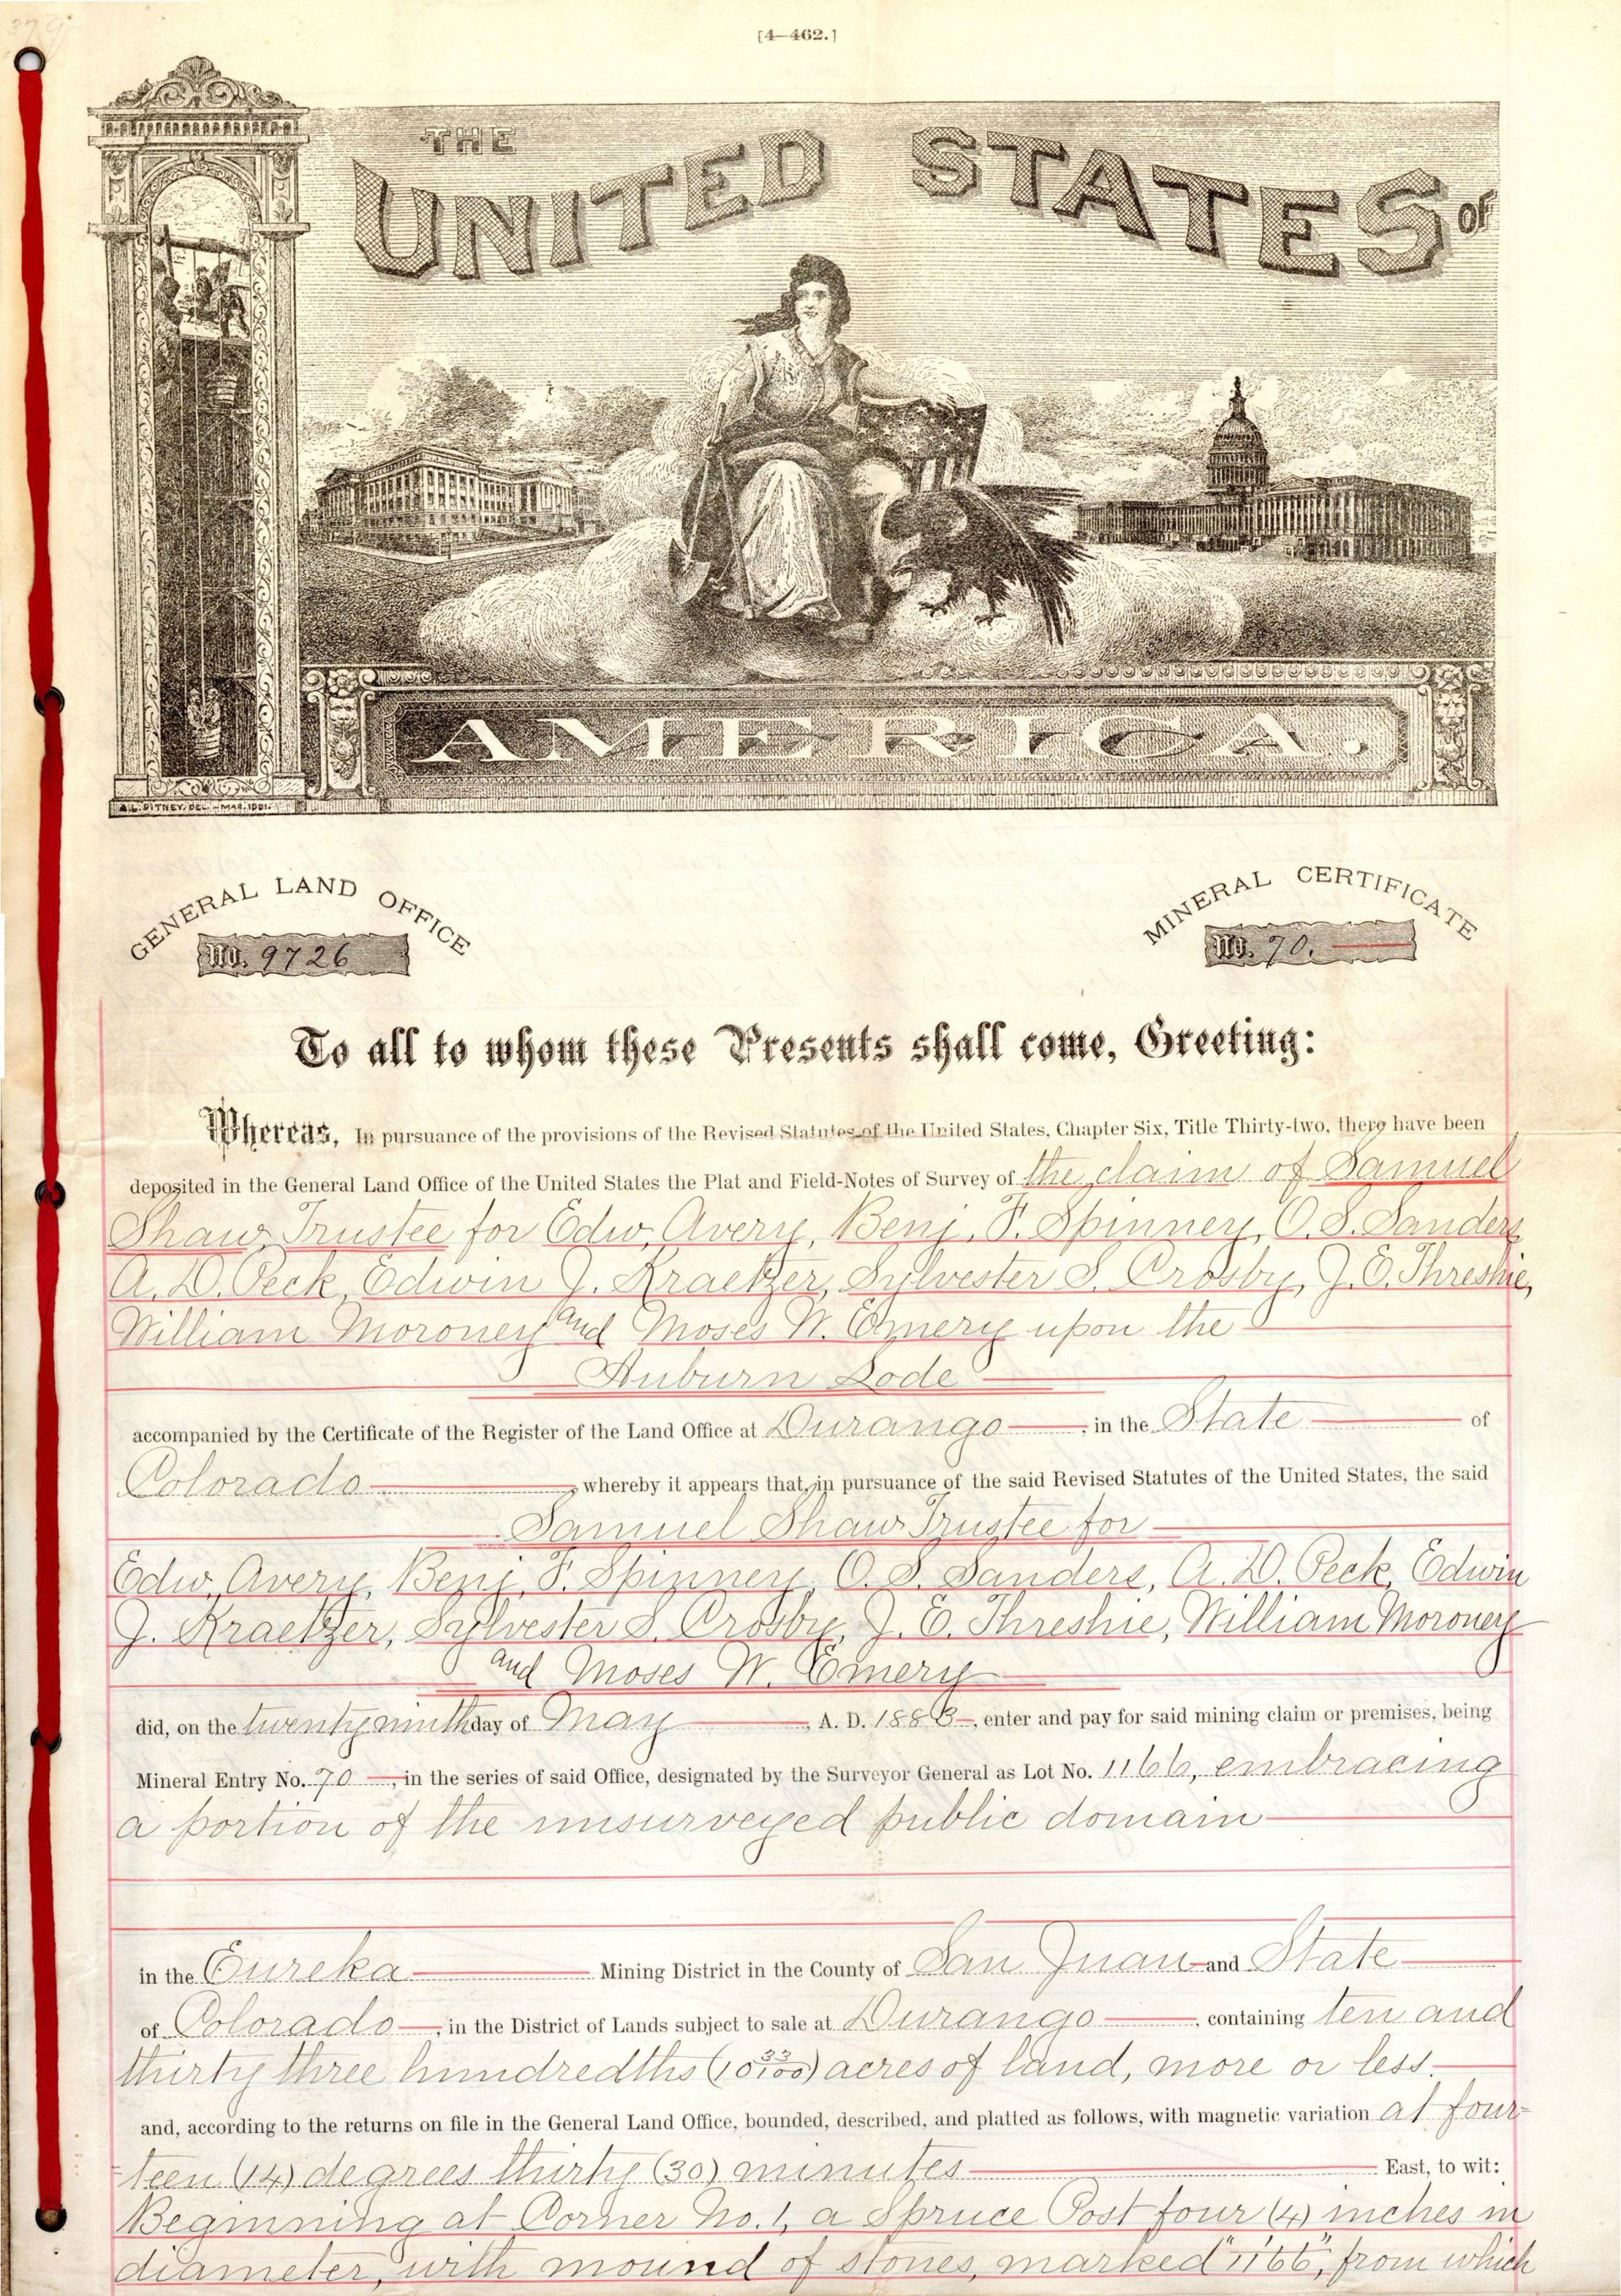 [4—462.]
THE
UNITED STATES OF
AMERICA.
A.L. PITNEY, DEL.—MAR. 1881.
GENERAL LAND OFFICE
No. 9726
MINERAL CERTIFICATE
No. 70.
To all to whom these Presents shall come, Greeting:
Whereas, In pursuance of the provisions of the Revised Statutes of the United States, Chapter Six, Title Thirty-two, there have been
deposited in the General Land Office of the United States the Plat and Field-Notes of Survey of the claim of Samuel
Shaw, Trustee for Edw. Avery, Benj. F. Spinney, O. S. Sanders,
A. D. Peck, Edwin J. Kraetzer, Sylvester S. Crosby, J. E. Threshie,
William Moroney and Moses W. Emery upon the
Auburn Lode
accompanied by the Certificate of the Register of the Land Office at Durango, in the State of
Colorado, whereby it appears that, in pursuance of the said Revised Statutes of the United States, the said
Samuel Shaw Trustee for
Edw. Avery, Benj. F. Spinney, O. S. Sanders, A. D. Peck, Edwin
J. Kraetzer, Sylvester S. Crosby, J. E. Threshie, William Moroney
and Moses W. Emery
did, on the twenty ninth day of May, A. D. 1883, enter and pay for said mining claim or premises, being
Mineral Entry No. 70, in the series of said Office, designated by the Surveyor General as Lot No. 1166, embracing
a portion of the unsurveyed public domain
in the Eureka Mining District in the County of San Juan and State
of Colorado, in the District of Lands subject to sale at Durango, containing ten and
thirty three hundredths (10 33/100) acres of land, more or less.
and, according to the returns on file in the General Land Office, bounded, described, and platted as follows, with magnetic variation at four-
teen (14) degrees thirty (30) minutes East, to wit:
Beginning at Corner No. 1, a Spruce Post four (4) inches in
diameter, with mound of stones, marked "1166", from which